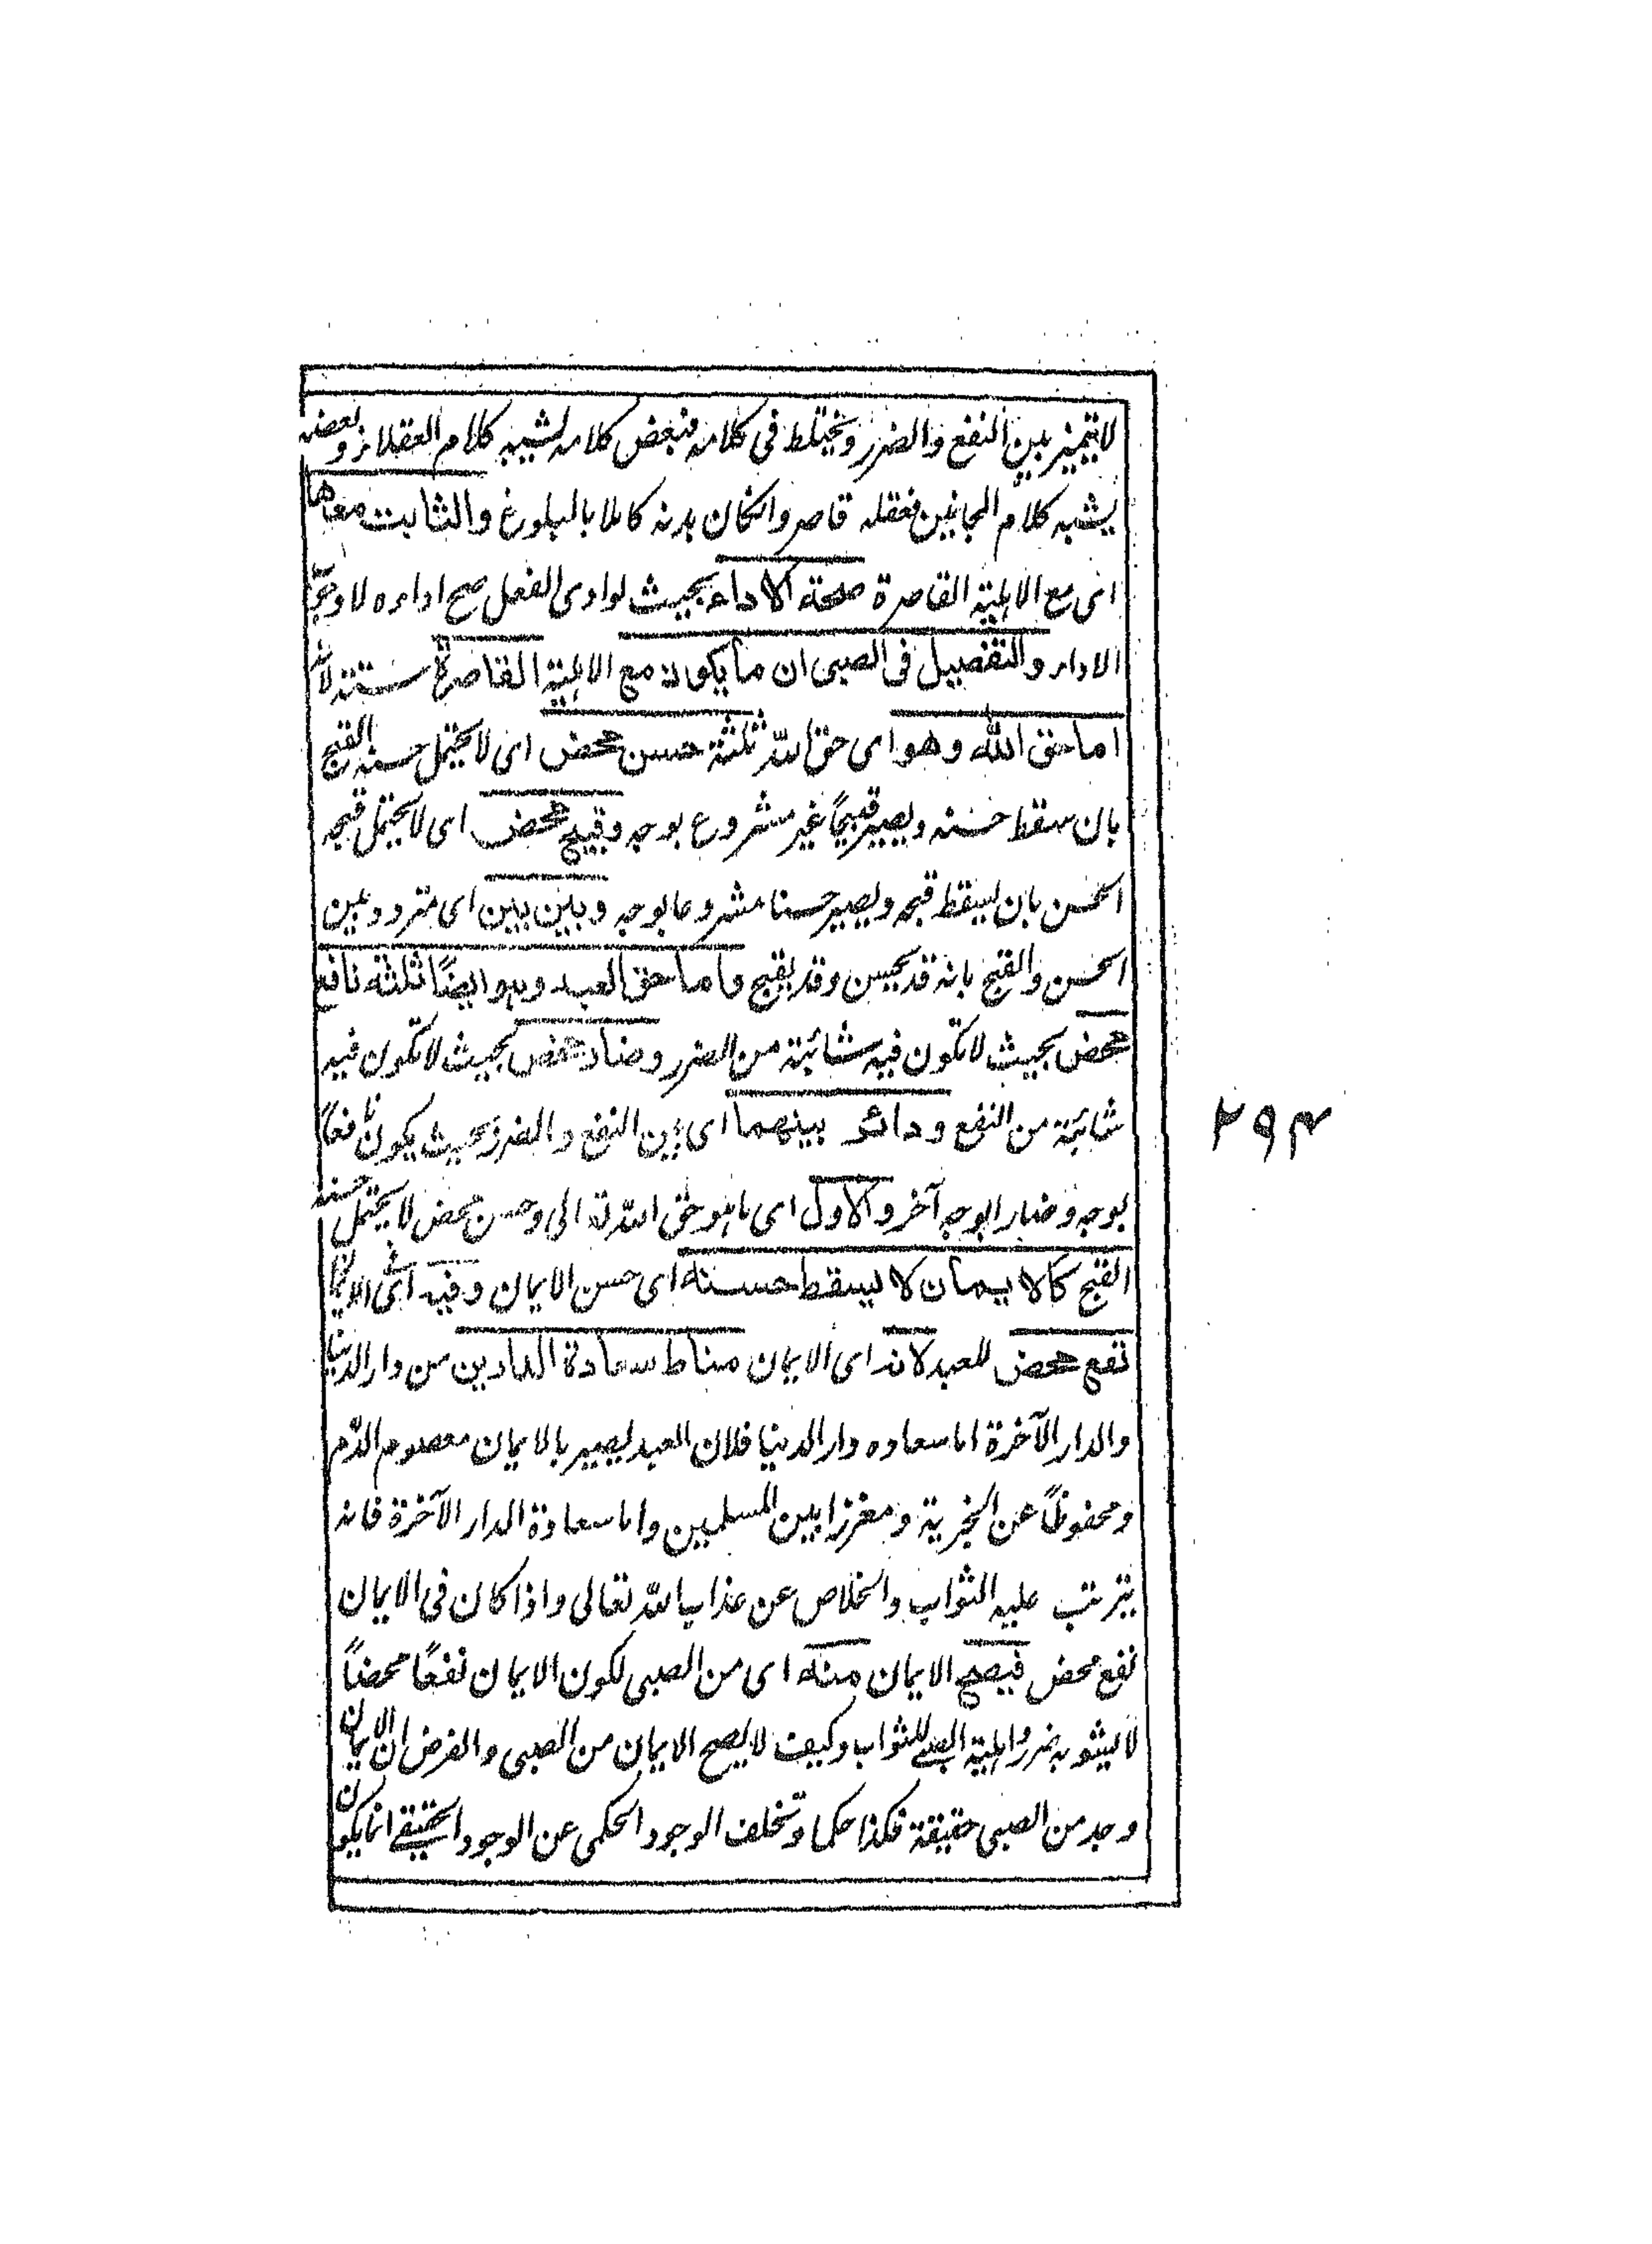 لا يتميز بين النفع والضرر ويختلط فى كلامه فبعض كلامه يشبه كلام العقلاء وبعضه
يشبه كلام المجانين فعقله قاصر وانكان بدنه كاملا بالبلوغ والثابت معها
اى مع الاهلية القاصرة صحة الاداء بحيث لو ادى الفعل صح اداءه لا وجوب
الاداء والتفصيل فى الصبى ان ما يكون مع الاهلية القاصرة ستة لانه
اما حق الله وهو اى حق الله ثلثة حسن محض اى لا يحتمل حسنه القبح
بان سقط حسنه ويصير قبيحًا غير مشروع بوجه وقبيح محض اى لا يحتمل قبحه
الحسن بان يسقط قبحه ويصير حسنا مشروعا بوجه وبين بين اى متردد بين
الحسن والقبح بانه قد يحسن وقد يقبح واما حق العبد وهو ايضًا ثلثة نافع
محض بحيث لا تكون فيه شائبة من الضرر وضار محض بحيث لا تكون فيه
شائبة من النفع ودائر بينهما اى بين النفع والضرر بحيث يكون نافعًا
بوجه وضارا بوجه آخر والاول اى ما هو حق الله تعالى وحسن محض لا يحتمل حسنه
القبح كالايمان لا يسقط حسنه اى حسن الايمان وفيه اى فى الايمان
نفع محض للعبد لانه اى الايمان مناط سعادة الدارين من دار الدنيا
والدار الآخرة اما سعاده دار الدنيا فلان العبد يصير بالايمان معصوم الدم
ومحفوظًا عن الجزية ومعززا بين المسلمين واما سعادة الدار الآخرة فانه
يترتب عليه الثواب والخلاص عن عذاب الله تعالى واذا كان فى الايمان
نفع محض فيصح الايمان منه اى من الصبى لكون الايمان نفعًا محضاً
لا يشوبه ضرر واهلية الصبے للثواب وكيف لا يصح الايمان من الصبى والفرض ان الايمان
وجد من الصبى حقيقة فكذا حكما وتخلف الوجود الحكمى عن الوجود الحقيقے انما يكون
۲۹۴